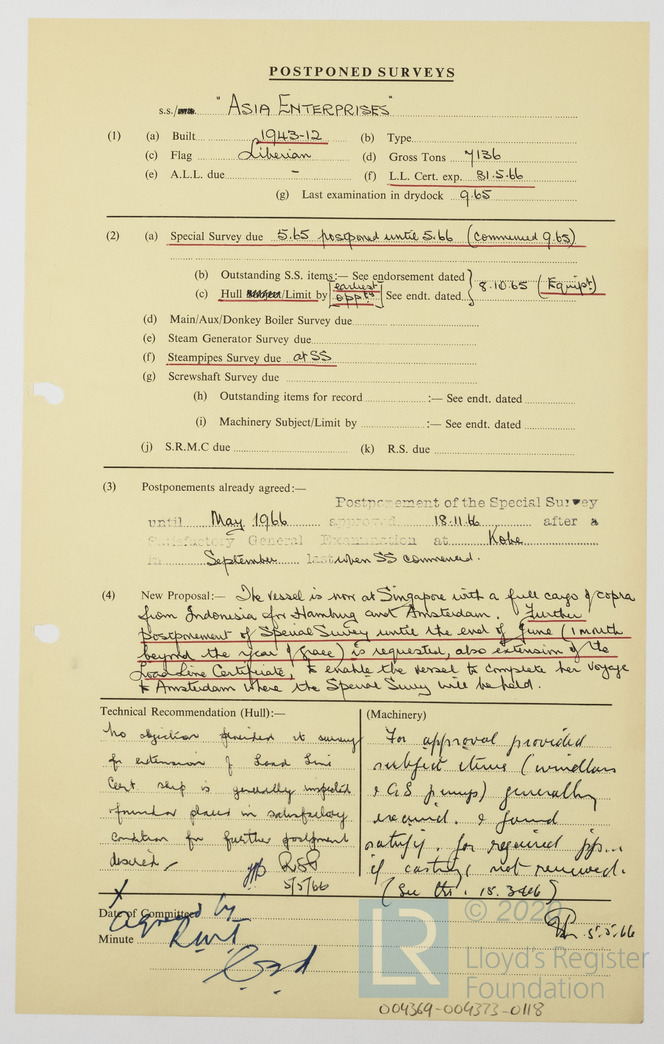 POSTPONED SURVEYS
s.s./ "ASIA ENTERPRISES"
(1) (a) Built 1943-12 (b) Type
(c) Flag Liberian (d) Gross Tons 7136
(e) A.L.L. due - (f) L.L. Cert. exp. 31.5.66
(g) Last examination in drydock 9.65
(2) (a) Special Survey due 5.65 postponed until 5.66 (commenced 9.65)
(b) Outstanding S.S. items:— See endorsement dated
(c) Hull /Limit by earliest oppty See endt. dated 8.10.65 (Equipt.)
(d) Main/Aux/Donkey Boiler Survey due
(e) Steam Generator Survey due
(f) Steampipes Survey due at SS
(g) Screwshaft Survey due
(h) Outstanding items for record :— See endt. dated
(i) Machinery Subject/Limit by :— See endt. dated
(j) S.R.M.C due (k) R.S. due
(3) Postponements already agreed:—
Postponement of the Special Survey
until May 1966 approved 18.11.66 after a
Satisfactory General Examination at Kobe
in September last when SS commenced.
(4) New Proposal:— The vessel is now at Singapore with a full cargo of copra
from Indonesia for Hamburg and Amsterdam. Further
postponement of Special Survey until the end of June (1 month
beyond the year of grace) is requested, also extension of the
Load Line Certificate, to enable the vessel to complete her voyage
to Amsterdam where the Special Survey will be held.
Technical Recommendation (Hull):— (Machinery)
No objection provided at survey
for extension of Load Line
Cert ship is generally inspected
found or placed in satisfactory
condition for further postponement
desired
RSP
5/5/66
For approval provided
subject items (windlass
& G.S. pumps) generally
examd. & found
satisfy. for required
if castings not renewed.
(See 18.3.66)
5.5.66
Date of Committee
agreed by
Minute
© 2020
Lloyd's Register
Foundation
LR
004369-004373-0118